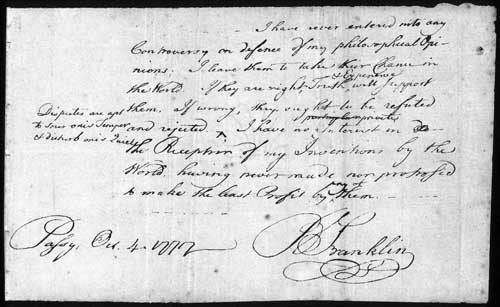 I have never entered into any
Controversy in defence of my philosophical Opi-
nions; I leave them to take their Chance in
the World. If they are right, Truth & Experience will support
them. If wrong, they ought to be refuted
and rejected. I have no Interest in
Disputes are apt
to sour one's Temper
& disturb one's Quiet
the Reception of my Inventions by the
World, having never made nor proposed
to make the least Profit by any of them.
Passy, Oct. 4. 1777
B Franklin